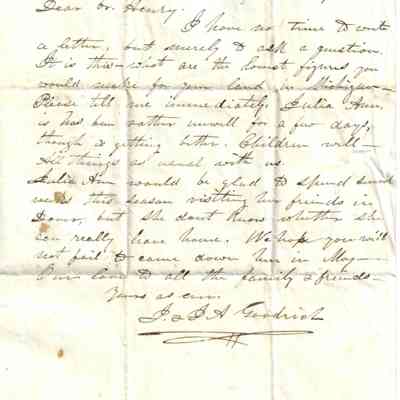 Dear Dr. Henry.
I have no time to write
a letter, but merely to ask a question.
It is this - what are the lowest figures you
would make for your land in Michigan -
Please tell me immediately. Julia Ann
is has been rather unwell for a few days,
though is getting better. Children well -
All things as usual with us.
Julia Ann would be glad to spend some
weeks this season visiting her friends in
but she dont know whether she
can really leave home. We hope you will
not fail to come down here in May -
Our love to all the family & friends
Yours as ever
J. & J A Goodrich